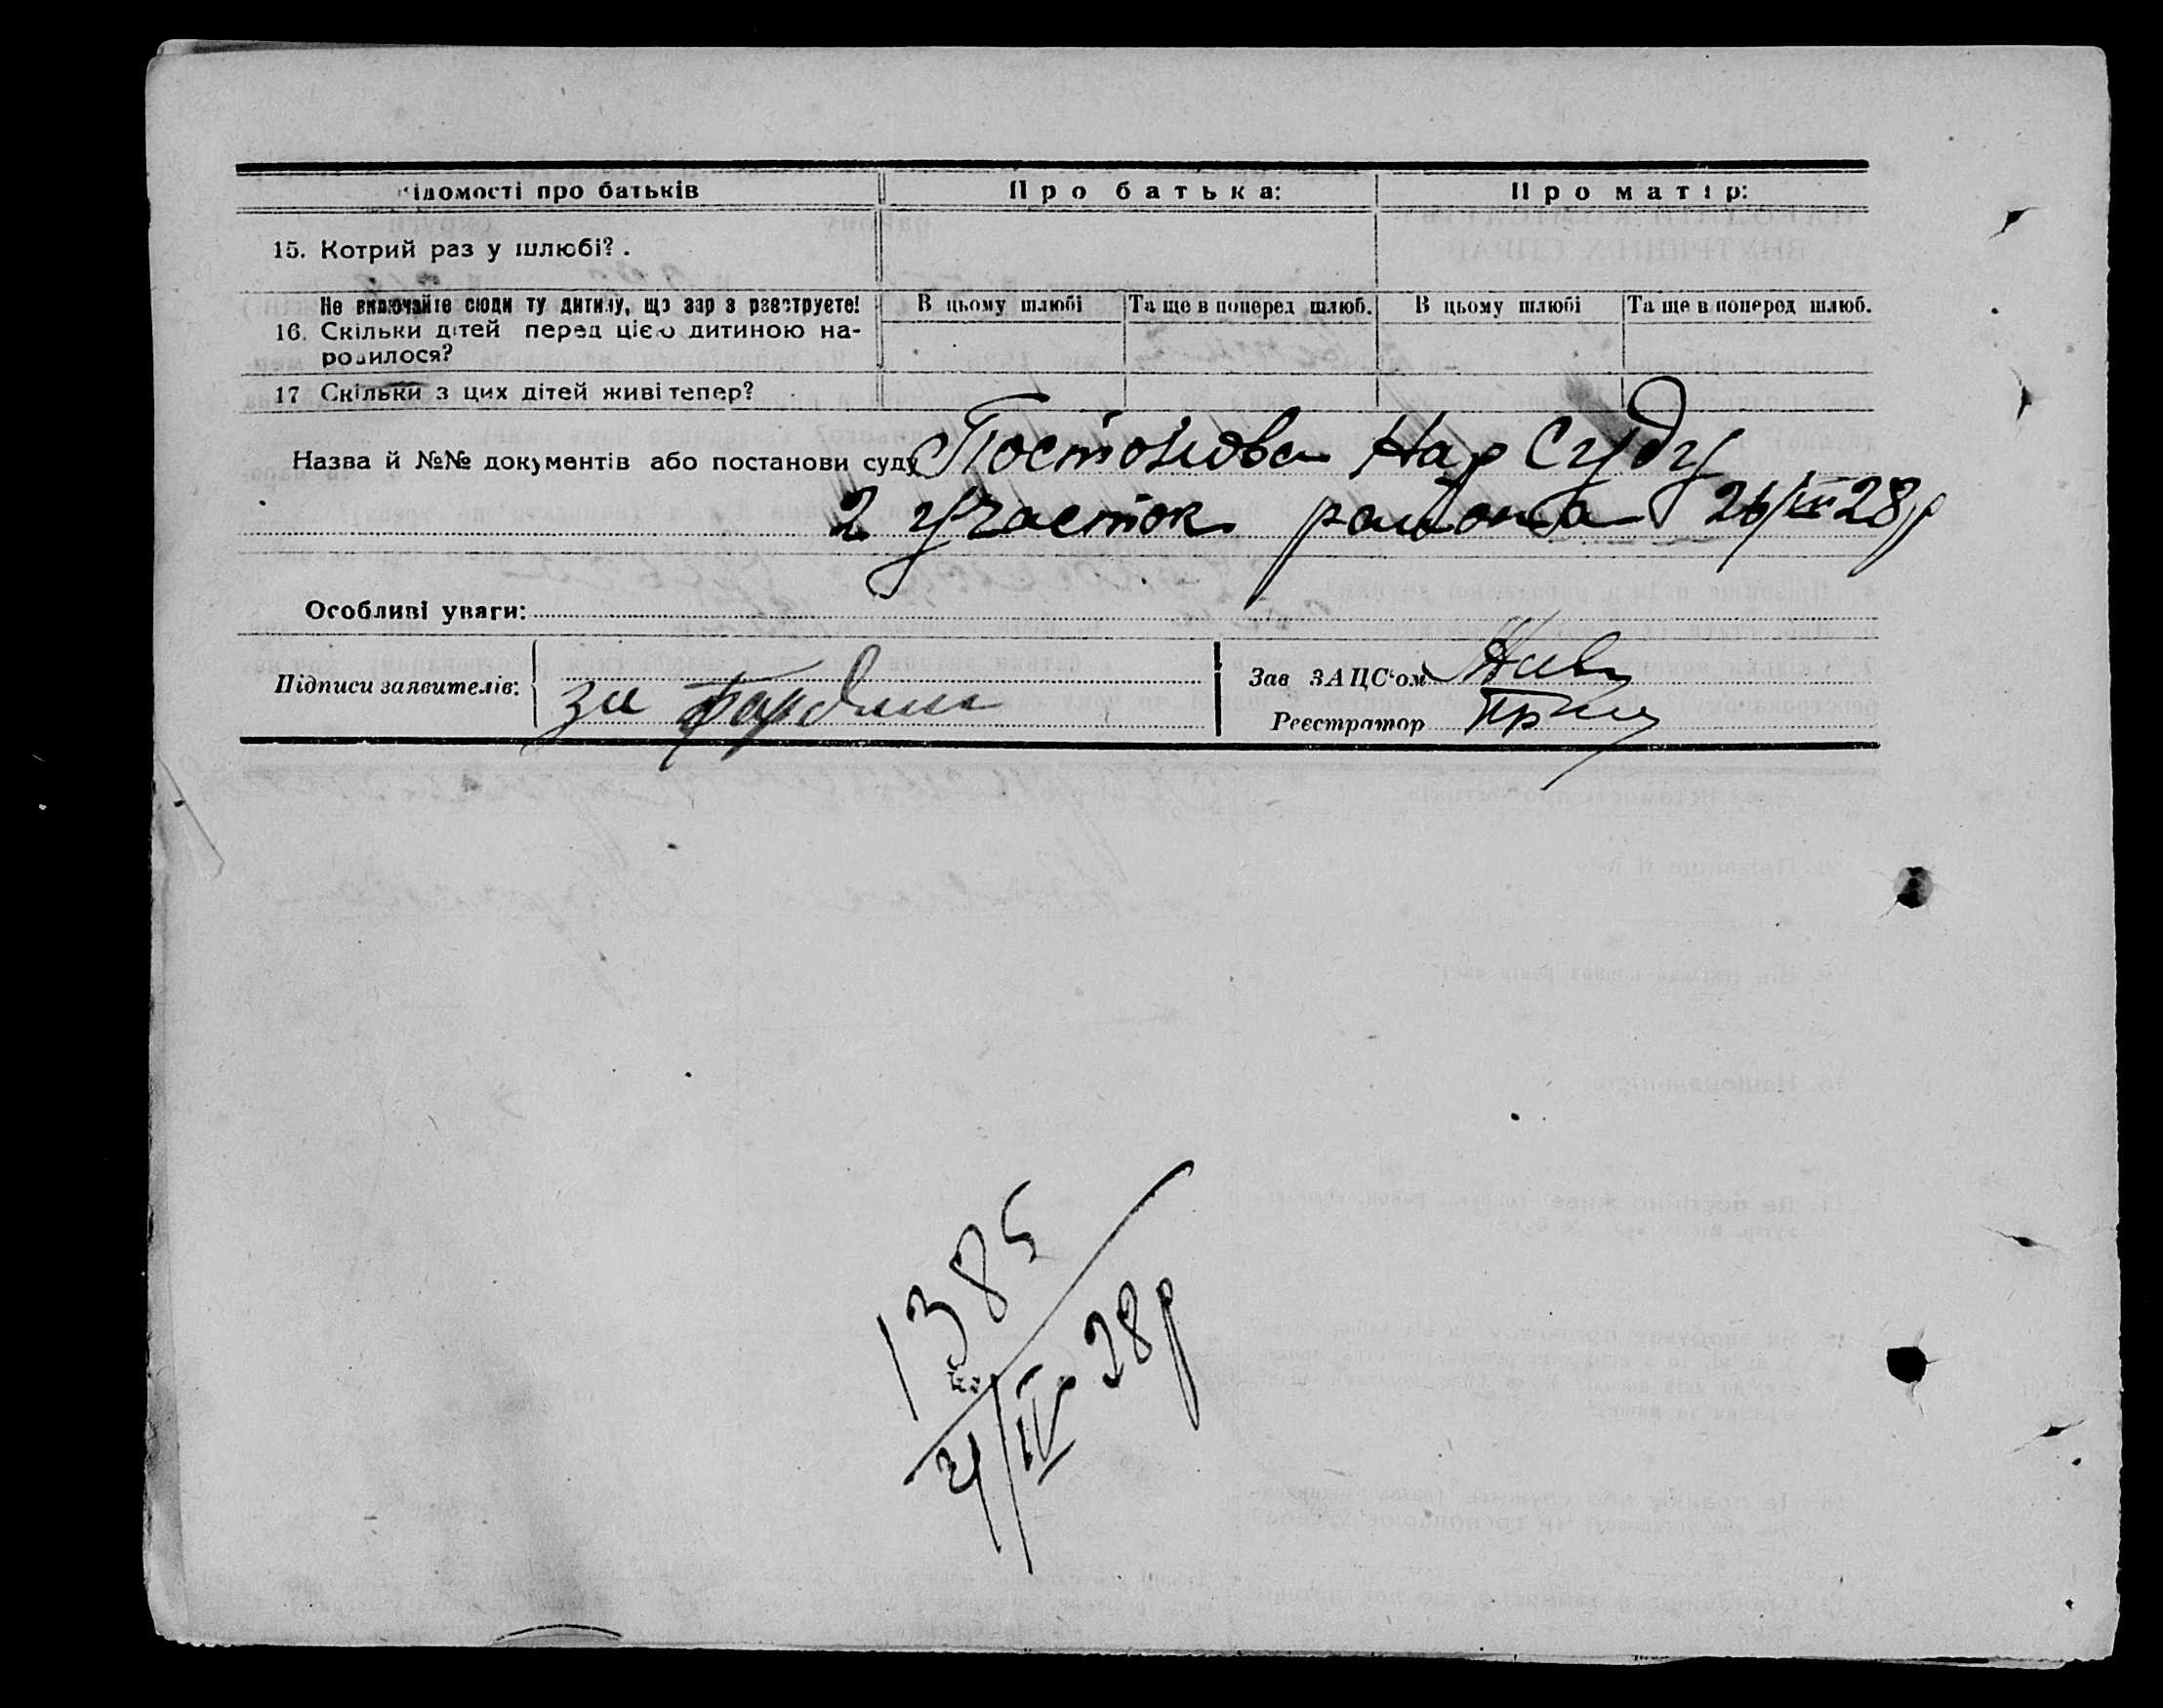 ідомості про батьків
Про батька:
Про матір:
15. Котрий раз у шлюбі? .
Не включайте сюди ту дитину, що зараз реєструєте!
В цьому шлюбі
Та ще в поперед шлюб.
В цьому шлюбі
Та ще в поперед шлюб.
16. Скільки дітей перед цією дитиною на-
родилося?
17 Скільки з цих дітей живі тепер?
Назва й №№ документів або постанови суду Постонова Нар Суду
2 участок района 26/III 28 р
Особливі уваги:
Підписи заявителів:
за
Зав ЗАЦС'ом
Реєстратор
1385
28 р